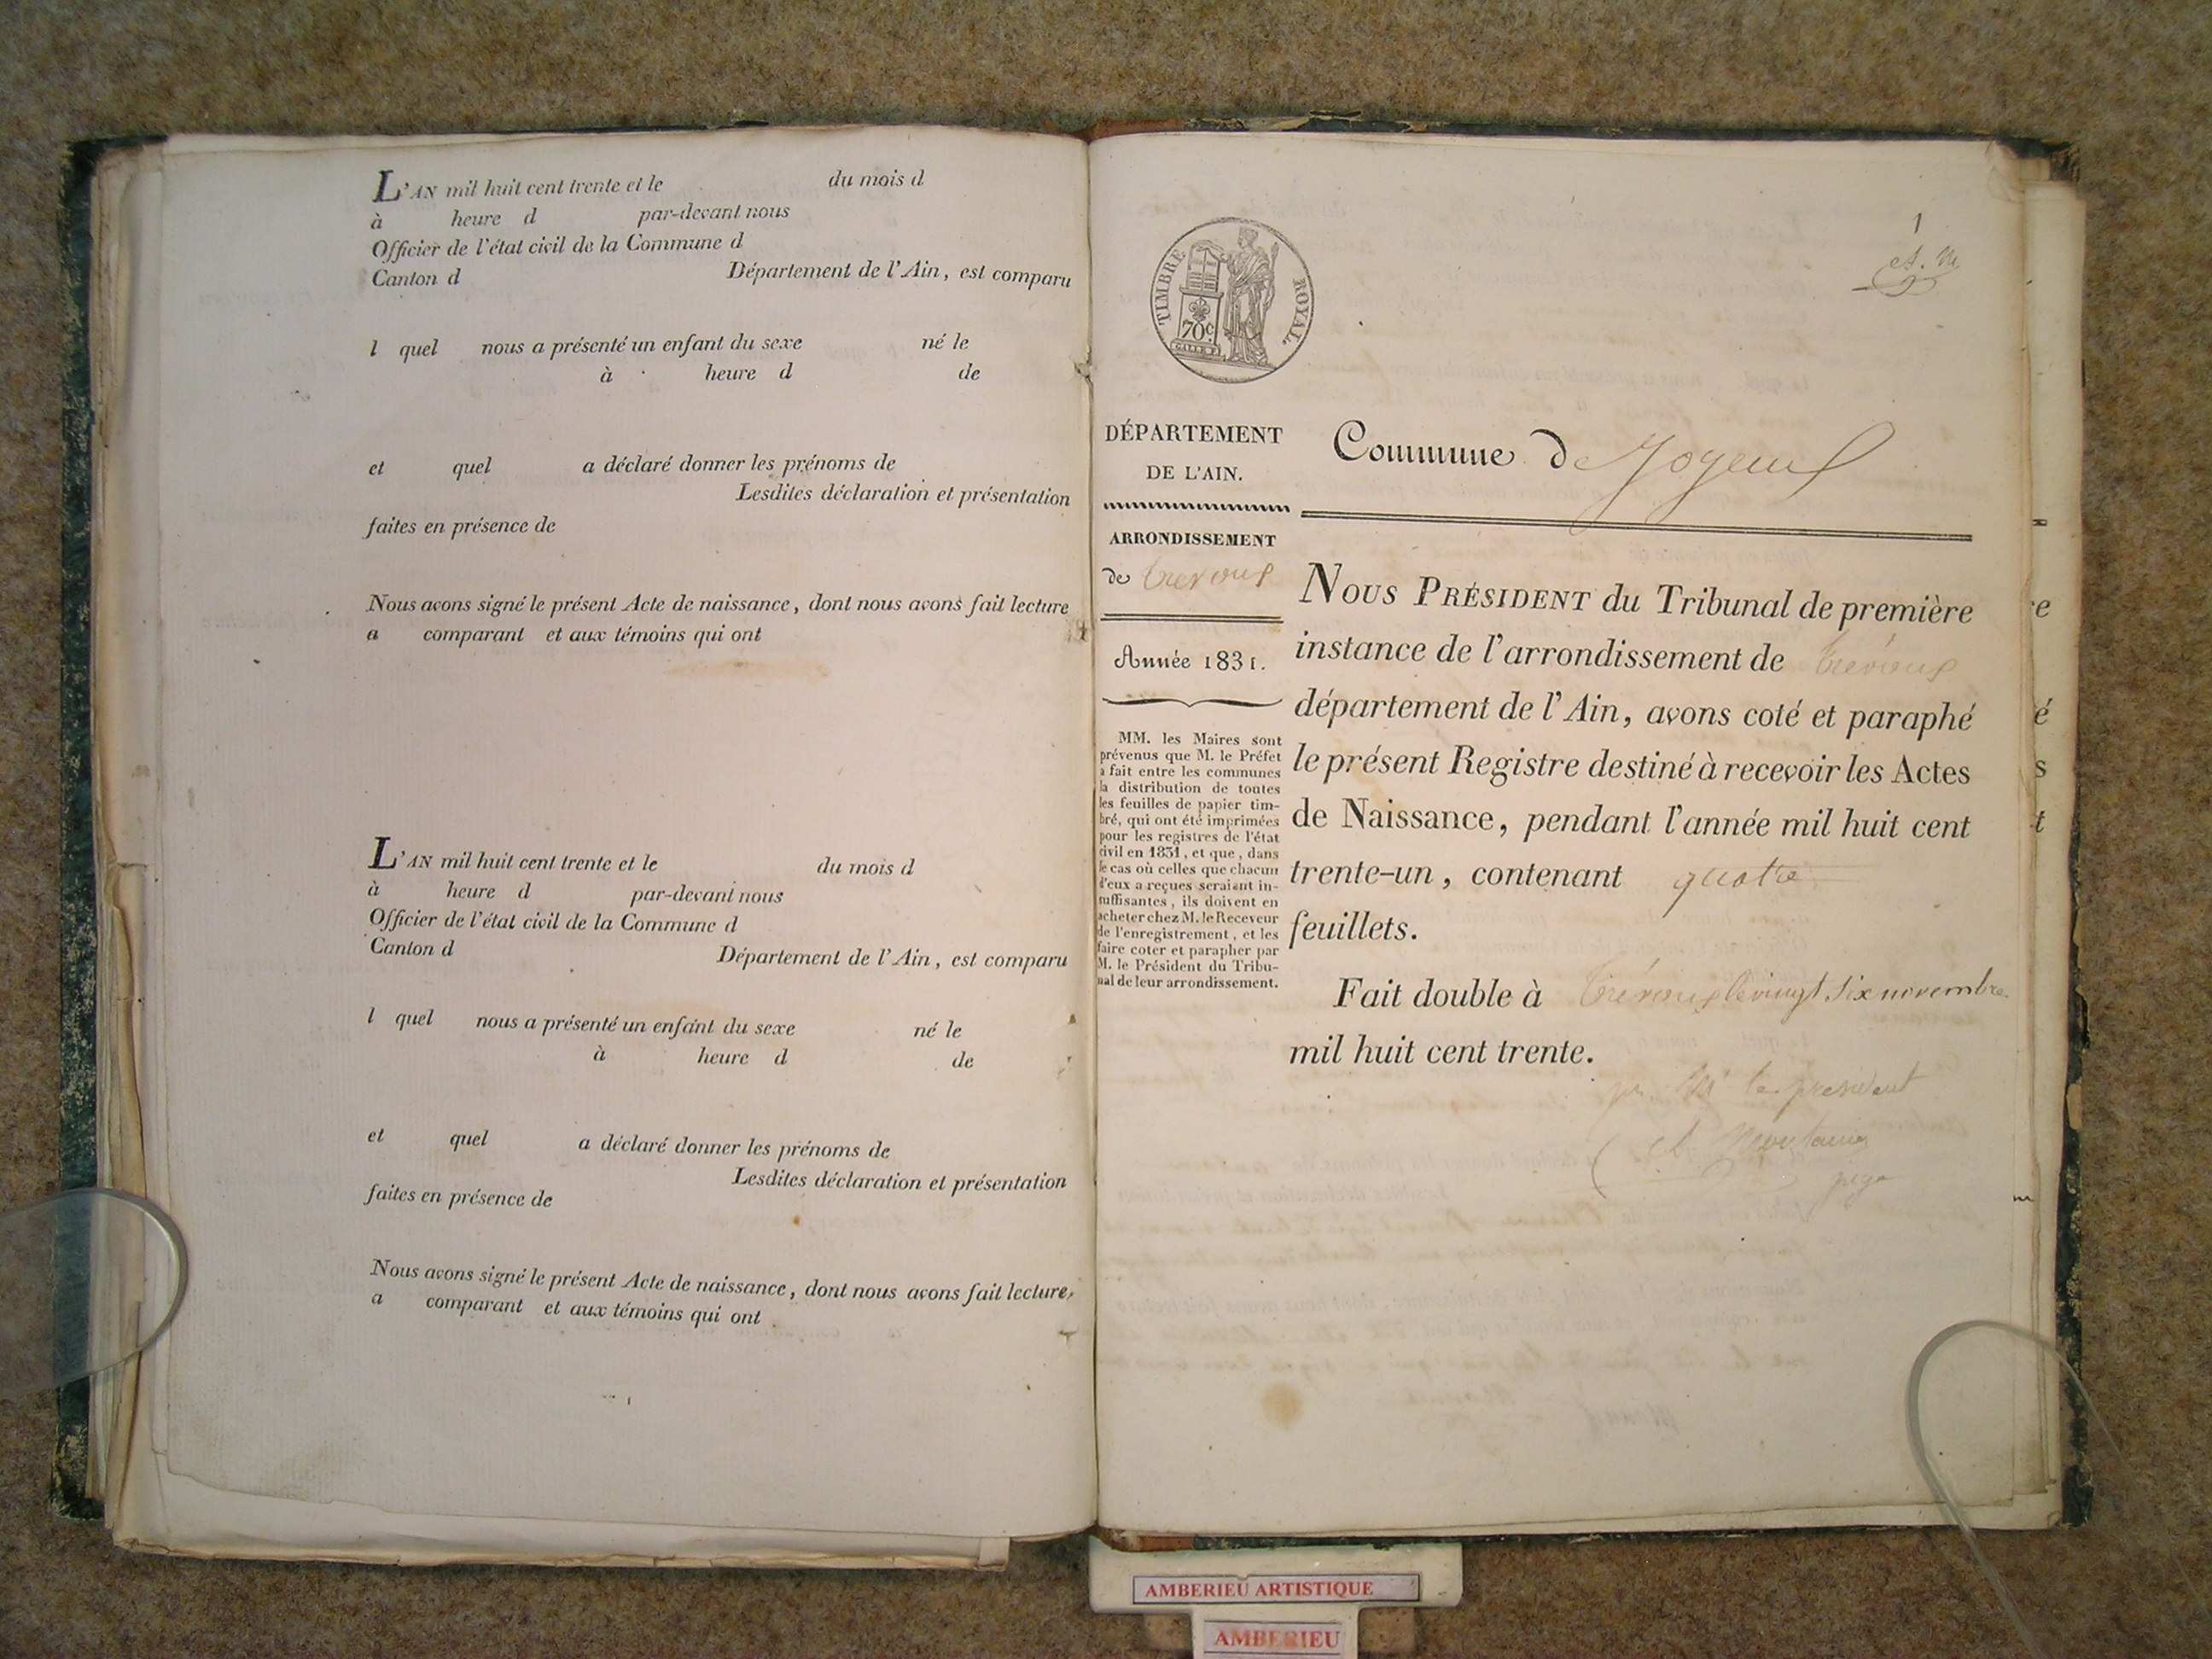 L'AN mil huit cent trente et le du mois d
à heure d par-devant nous
Officier de l'état civil de la Commune d
Canton d Département de l'Ain, est comparu
l quel nous a présenté un enfant du sexe né le
à heure d de
et quel a déclaré donner les prénoms de
Lesdites déclaration et présentation
faites en présence de
Nous avons signé le présent Acte de naissance, dont nous avons fait lecture
a comparant et aux témoins qui ont
L'AN mil huit cent trente et le du mois d
à heure d par-devant nous
Officier de l'état civil de la Commune d
Canton d Département de l'Ain, est comparu
l quel nous a présenté un enfant du sexe né le
à heure d de
et quel a déclaré donner les prénoms de
Lesdites déclaration et présentation
faites en présence de
Nous avons signé le présent Acte de naissance, dont nous avons fait lecture,
a comparant et aux témoins qui ont
1
TIMBRE ROYAL.
70c
DÉPARTEMENT
DE L'AIN.
ARRONDISSEMENT
de Trevoux
Année 1831.
MM. les Maires sont
prévenus que M. le Préfet
a fait entre les communes
la distribution de toutes
les feuilles de papier tim-
bré, qui ont été imprimées
pour les registres de l'état
civil en 1831, et que, dans
le cas où celles que chacun
d'eux a reçues seraient in-
suffisantes, ils doivent en
acheter chez M. le Receveur
de l'enregistrement, et les
faire coter et parapher par
M. le Président du Tribu-
nal de leur arrondissement.
Commune de Joyeux
NOUS PRÉSIDENT du Tribunal de première
instance de l'arrondissement de Trévoux
département de l'Ain, avons coté et paraphé
le présent Registre destiné à recevoir les Actes
de Naissance, pendant l'année mil huit cent
trente-un, contenant quatre
feuillets.
Fait double à Trévoux le vingt six novembre
mil huit cent trente.
pr. Mr le president
juge
AMBERIEU ARTISTIQUE
AMBERIEU